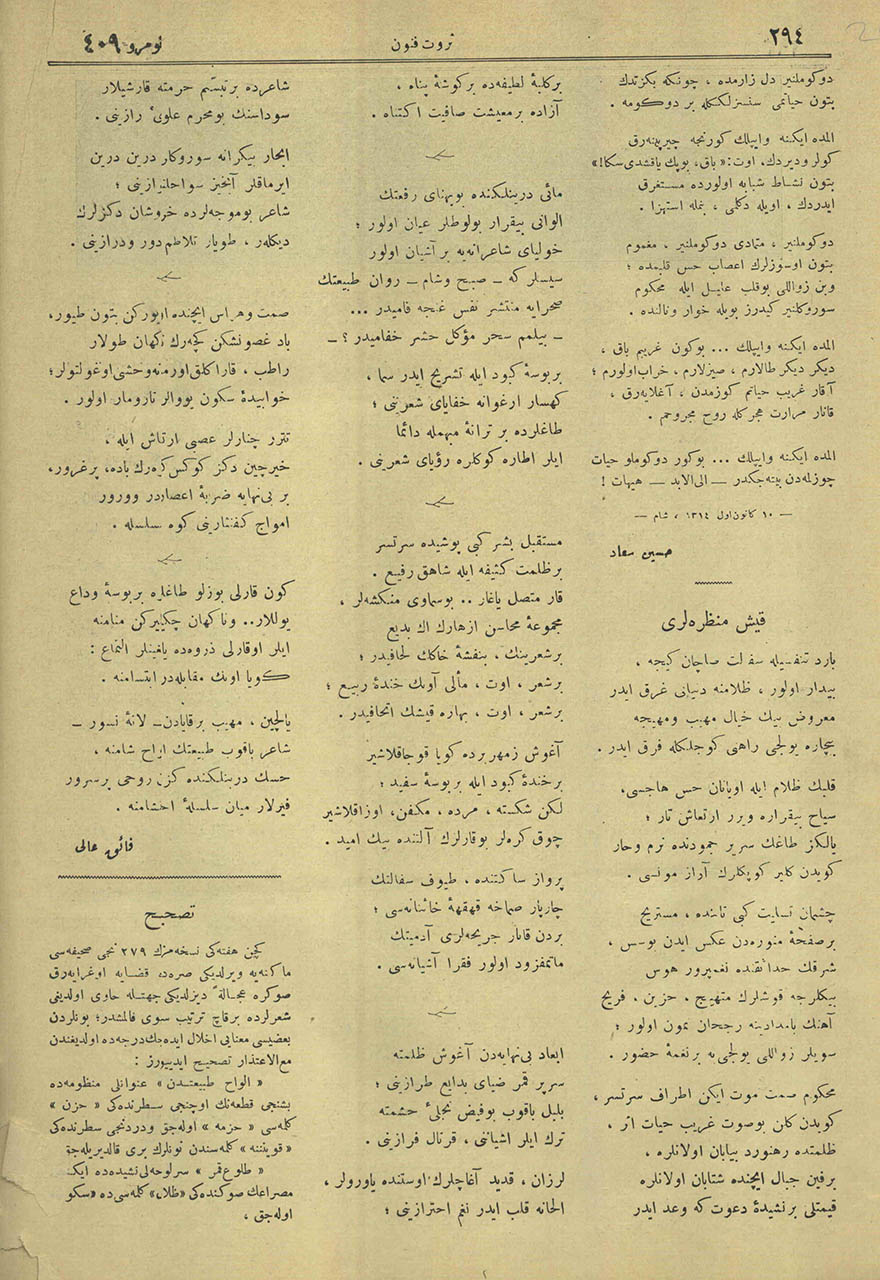 ٢٩٤
ثروت فنون
نومرو ٤٠٩
دوكوملنير دل زارمده ، چونكه بكزتدك
بتون حياتمى سنسزلكله بر دوكومه .
المده ايكنه وايپلك كورنجه چيرپنه‌رق
كولر وديردك. اوت: « باق، بويك ياقشدى سكا! »
بتون نشاط شبابه اولورده مستغرق
ايدردك ، اويله دكلمى ، بنمله استهزا .
دوكوملنير ، متمادى دوكوملنير ، مغموم
بتون اوسوزلرك اعصاب حس قلبمده ؛
وبن زواللى بوقلب عليل ايله محكوم
سوروكلنير كيدرز بويله خوار ونالنده .
المده ايكنه وايپلك ... بوكون غريبم باق ،
ديكر ديكر طالارم ، صيزلارم ، خراب اولورم ؛
آقار غريب حياتم كوزمدن ، آغلايه‌رق ،
قانار مرارت هجركله روح مجروحم .
المده ايكنه وايپلك ... بوكور دوكوملو حيات
چوزلمه‌دن بيته‌جكدر ــ الى الابد ــ هيهات !
— ١٠ كانون اول ١٣١٤ ، شام —
حسين سعاد
قيش منظره‌لرى
بارد تنفسيله سفالت صاچان كيجه ،
بيدار اولور ، ظلامنه دنيايى غرق ايدر
معروض بيك خيال مهيب ومهيجه
بيچاره يولجى راهى كوجلكله فرق ايدر .
قلبك ظلام ايله اويانان حس هاجسى،
سياح بيقراره ويرر ارتعاش تار ؛
يالكز طاغك سرير جمودنده نرم وحار
كويدن كلير كوپكلرك آراز مونسى .
چشمان تسليت كبى تابنده ، مستريح
بر صفحهٔ منوره‌دن عكس ايدن بوسس ،
شرقك حدائقنده نغمپرور هوس
بيكلرجه قوشلرك متهيج ، حزين ، فريح
آهنك بامدادينه رجحان نمون اولور ؛
سويلر زواللى يولجى‌يه بر نغمهٔ حضور .
محكوم صمت موت ايكن اطراف سرتسر ،
كويدن كلن بوصوت غريب حيات اثر ،
ظلمتده رهنورد بيابان اولانلره ،
برفين جبال ايچنده شتابان اولانلره
قيمتلى بر نشيدهٔ دعوت كه وعد ايدر
بر كلبهٔ لطيفه‌ده بر كوشهٔ پناه ،
آزاده بر معيشت صافيت اكتناه .
مائى درينلكنده بوپهناى رفعتك
الوانى بيقرار بولوطلر عيان اولور ؛
خولياى شاعرانه‌يه بر آشيان اولور
سيسلر كه ــ صبح وشام ــ روان طبيعتك
صحرايه منتشر نفس غنجه فاميدر ...
ــ بيلمم سحر مؤكل حشر خفاميدر ؟ ــ
بر بوسهٔ كبود ايله تشريح ايدر سما ،
كهسار ارغوانه خفاياى شعرينى ؛
طاغلرده بر ترانهٔ مبهمله دائما
ايلر اطاره كوكلره رؤياى شعرينى .
مستقبل بشر كبى پوشيده سرتسر
بر ظلمت كثيفه ايله شاهق رفيع .
قار متصل ياغار .. بوسماوى منكشه‌لر ،
مجموعهٔ محاسن ازهارك اك بديع
بر شعرينك ، بنفشهٔ خاكك لحافيدر ؛
بر شعر ، اوت ، مآلى آونك خندهٔ ربيع ؛
بر شعر ، اوت ، بهاره قيشك اتحافيدر .
آغوش زمهريرده كويا قوجاقلاشير
بر خندهٔ كبود ايله بر بوسهٔ سفيد ؛
لكن شكسته ، مرده ، مكفن، اوزاقلاشير
چوق كره‌لر بوقارلرك آلتنده بيك اميد .
پرواز ساكتنده ، طيوف سفالتك
چارپار صماخه قهقههٔ خائنانه‌سى ؛
بردن قانار جريحه‌لرى آدميتك
ماتمفزود اولور فقرا آشيانه‌سى .
ابعاد بى‌نهايه‌دن آغوش ظلمته
سرپر قمر ضياى بدايع طرازينى ؛
بلبل باقوب بوفيض تجلىٔ حشمته
ترك ايلر اشيانى ، قرتال فرازينى .
لرزان ، قديد آغاچلرك اوستنده ياورولر ،
الحانه قلب ايدر نغم احترازينى ؛
شاعرده بر تبسم حرمته قارشيلار
سوداسنك بومحرم علوىٔ رازينى .
ابحار بيكرانه سوروكار درين درين
ايرماقلر آنجز سواحلنوازينى ؛
شاعر بوموجه‌لرده خروشان دكزلرك
ديكلر ، طويار تلاطم دور ودرازينى .
صمت وهراس ايچنده اويوركن بتون طيور،
باد غصونشكن كچه‌رك ناكهان طولار
راطب ، قاراكلق اورمنه وحشى اوغولتولر؛
خوابيدهٔ سكون يووالر تارومار اولور .
تترر چنارلر عصبى ارتعاش ايله ،
خيرچين دكز كوكس كره‌رك باده، پرغرور،
بر بى‌نهايه ضربهٔ اعصاردر وورور
امواج كفنثارينى كوه سلسله .
كون قارلى بوزلو طاغلره بر بوسهٔ وداع
يوللار.. وناكهان چكليركن منامنه
ايلر اوقارلى ذروه‌ده ياغينلر التماع :
كويا اونك مقابله‌در ابتسامنه .
يالچين ، مهيب بر قايادن‌ــ لانهٔ نسور ــ
شاعر باقوب طبيعتك الواح شامنه ،
حسك درينلكنده كزن روحى پرسرور
فيرلار ميان سلسلهٔ احتشامنه .
فائق عالى
تصحيح
كچن هفته‌كى نسخه‌مزك ٢٧٩ نجى صحيفه‌سى
ماكنه‌يه ويرلديكى صره‌ده قضايه اوغرايه‌رق
صوكره عجالةً ديزلديكى جهتله حاوى اولديغى
شعرلرده برقاچ ترتيب سهوى قالمشدر؛ بونلردن
بعضيسى معنايى اخلال ايده‌جك درجه‌ده اولديغندن
مع الاعتذار تصحيح ايدييورز :
« الواح طبيعتدن » عنوانلى منظومه‌ده
بشنجى قطعه‌نك اوچنجى سطرنده‌كى « حزن »
كله‌سى « حزمه » اوله‌جق ودردنجى سطرنده‌كى
« قويننه » كله‌سندن نونلرك برى قالديريله‌جق
« طلوع قمر » سرلوحه‌لى نشيده‌ده ايكى
مصراعك صوكنده‌كى «ظلال» كله‌سى‌ده «سكون»
اوله‌جق .